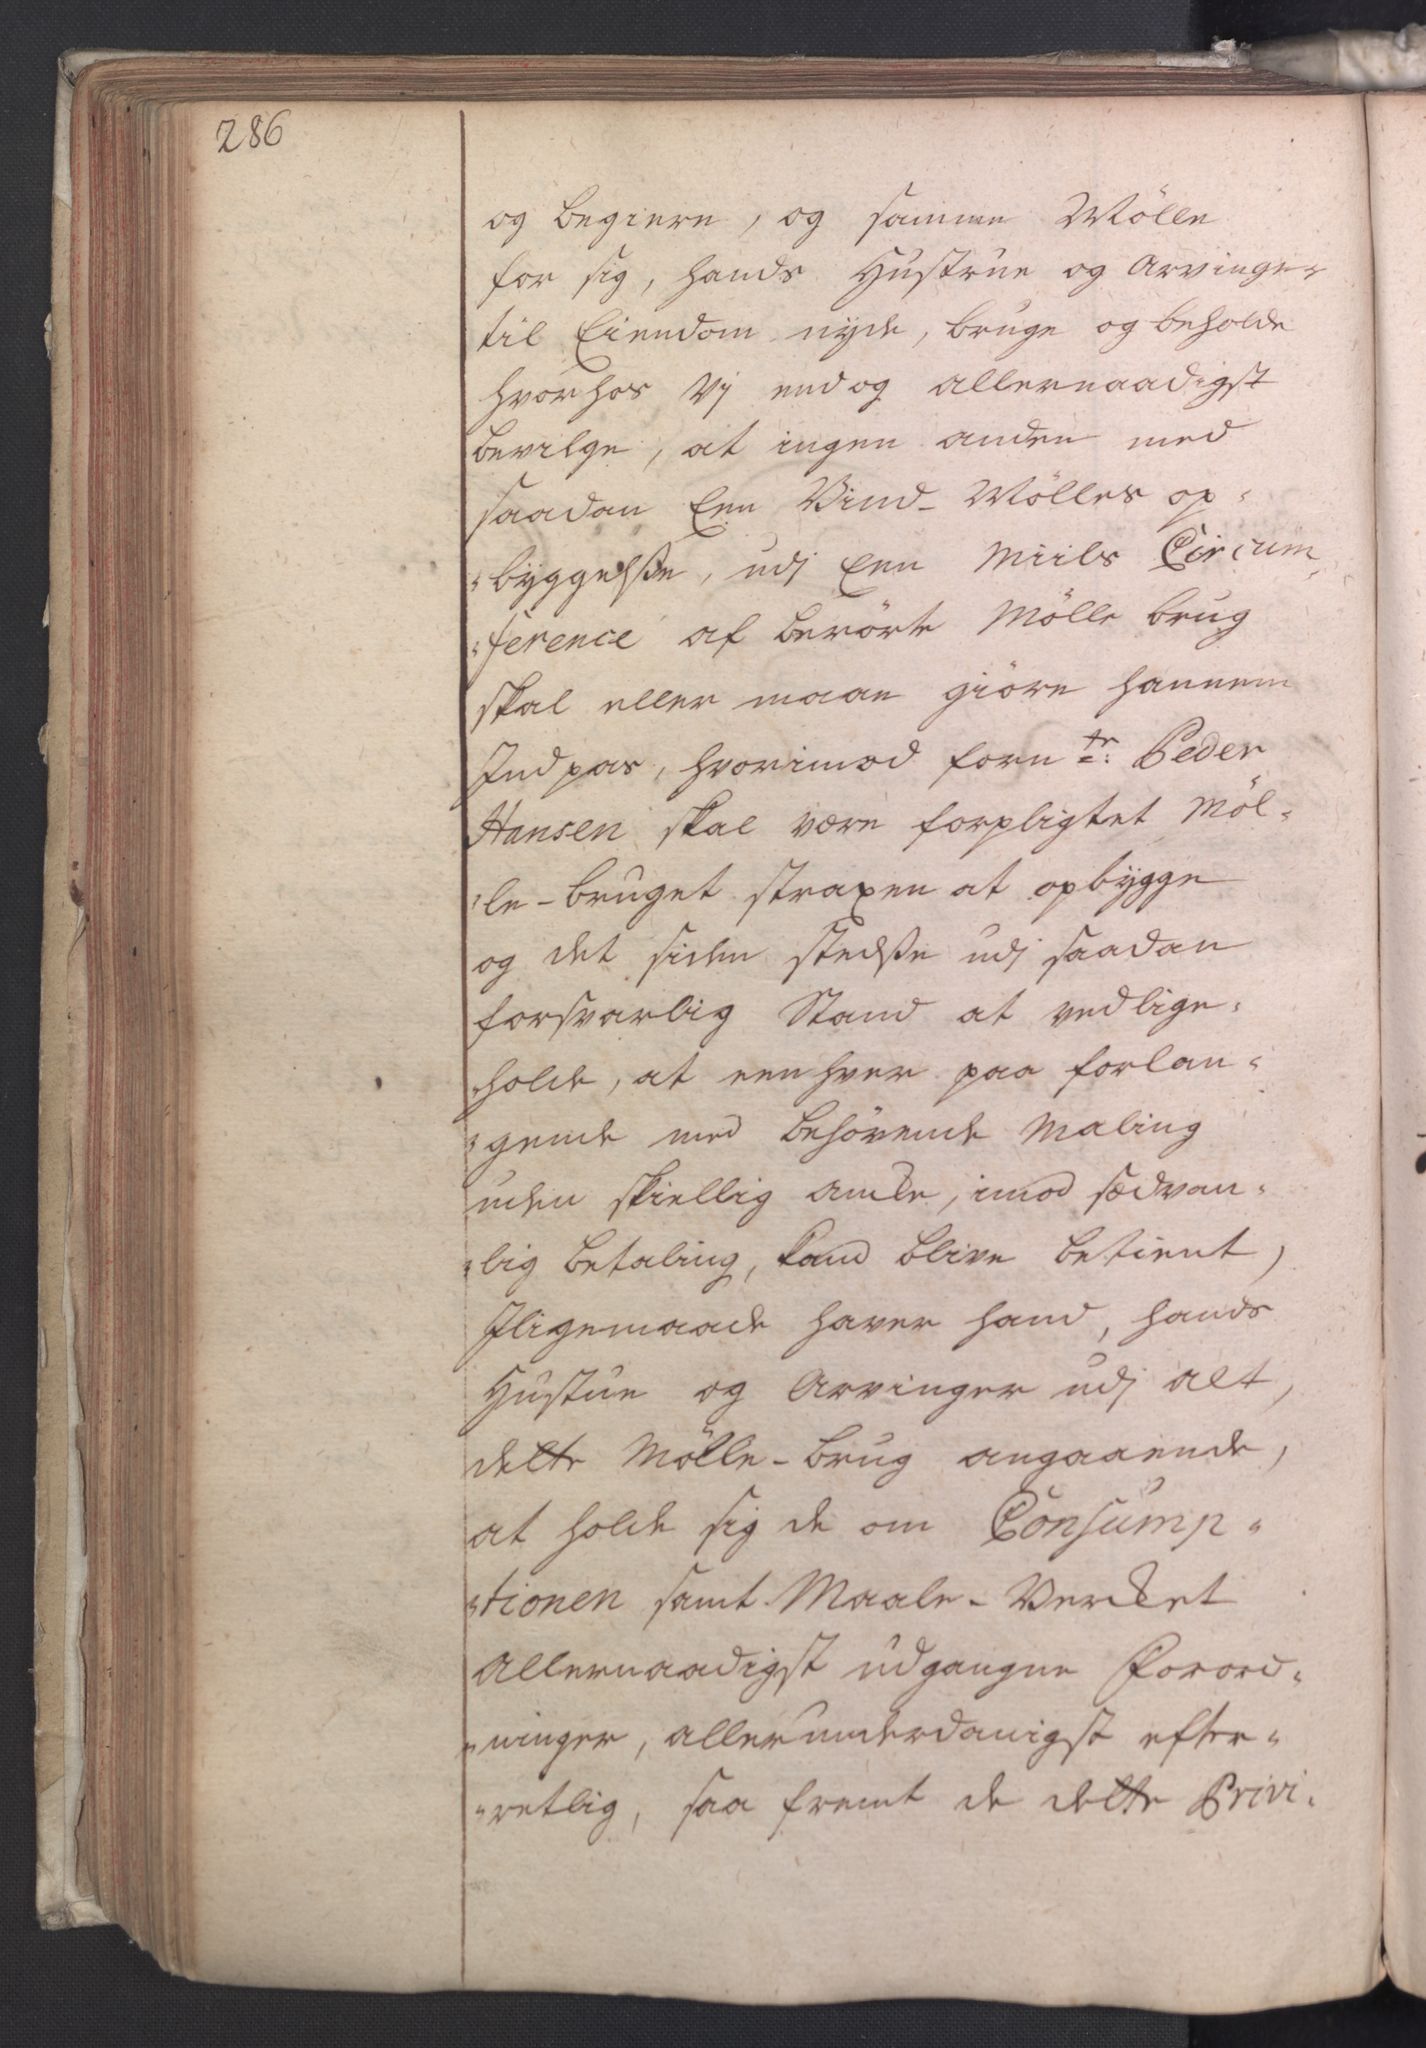 286
og begiere, og samme Mölle
for sig, hands Hustrue og Arvinger
til Eiendom nyde, bruge og beholde
hvorhos Vj endog allernaadigst
bevilge, at ingen anden med
saadan Een Vind-Mölles op-
byggelsse, udj Een Miils Circum-
ference af berörte Mölle brug
skal eller maae giöre hannem
Indpas, hvorimod fornte: Peder
Hansen skal være forpligtet Möl-
le-bruget straxen at opbygge
og det siden stedsse udj saadan
forsvarlig Stand at vedlige-
holde, at eenhver paa forlan-
gende med behövende Maling
uden skiellig Anke, imod sædvan-
lig betaling, kand blive betient,
Jligemaade haver hand, hands
Hustue og Arvinger udj alt,
dette Mölle-brug angaaende,
at holde sig de om Consump-
tionen samt Maale-Verket
allernaadigst udgangne Forord-
ninger, allerunderdanigst efter-
retlig, saa fremt de dette Privi-